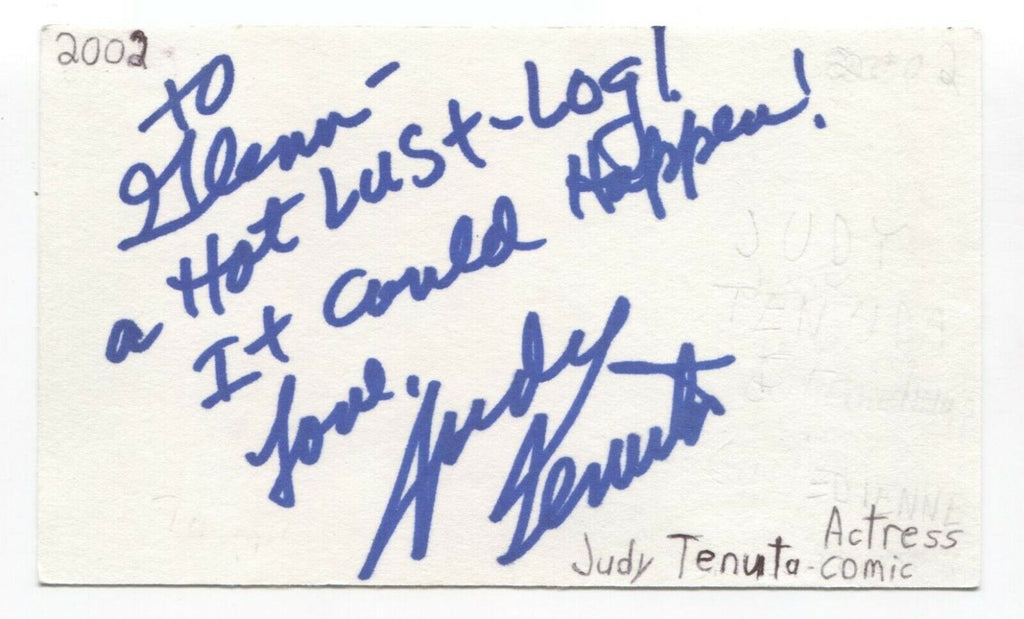 2002
to
Glenn-
a Hot LUSt-Log!
It Could Happen!
Love,
Judy
Tenuta
Actress
Judy Tenuta-comic
JUDY